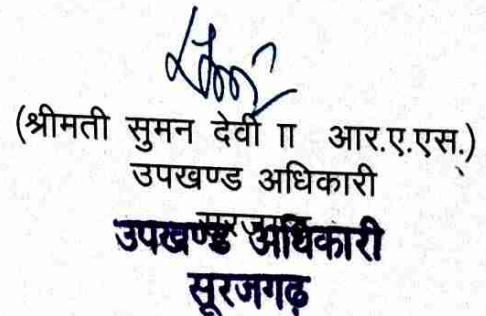 (श्रीमती सुमन देवी II आर.ए.एस.)
उपखण्ड अधिकारी
सूरजगढ़
उपखण्ड अधिकारी
सूरजगढ़